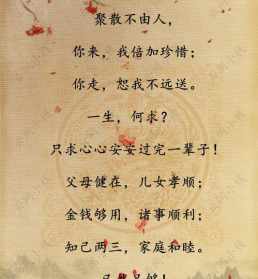 聚散不由人，
你来，我倍加珍惜；
你走，恕我不远送。
一生，何求？
只求心心安安过完一辈子！
父母健在，儿女孝顺；
金钱够用，诸事顺利；
知己两三，家庭和睦。